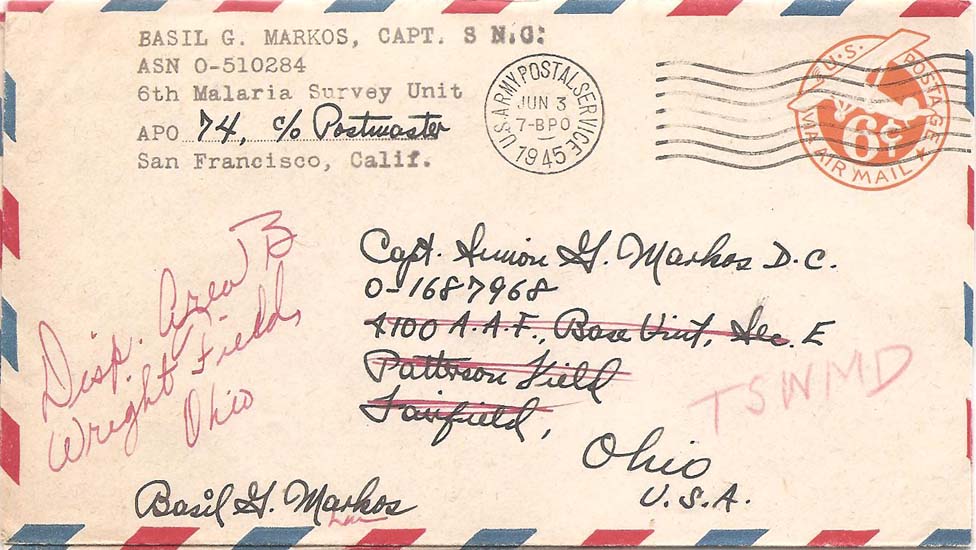 BASIL G. MARKOS, CAPT. S N.C:
ASN O-510284
6th Malaria Survey Unit
APO 74, c/o Postmaster
San Francisco, Calif.
U.S. ARMY POSTAL SERVICE
JUN 3
7-BPO
1945
U.S. POSTAGE
6¢
VIA AIR MAIL
Capt. Simon G. Markos D.C.
O-1687968
4100 A.A.F., Base Unit, Sec. E
Patterson Field
Fairfield,
Ohio
U.S.A.
Disp. Area B
Wright Field,
Ohio
TSWMD
Basil G. Markos